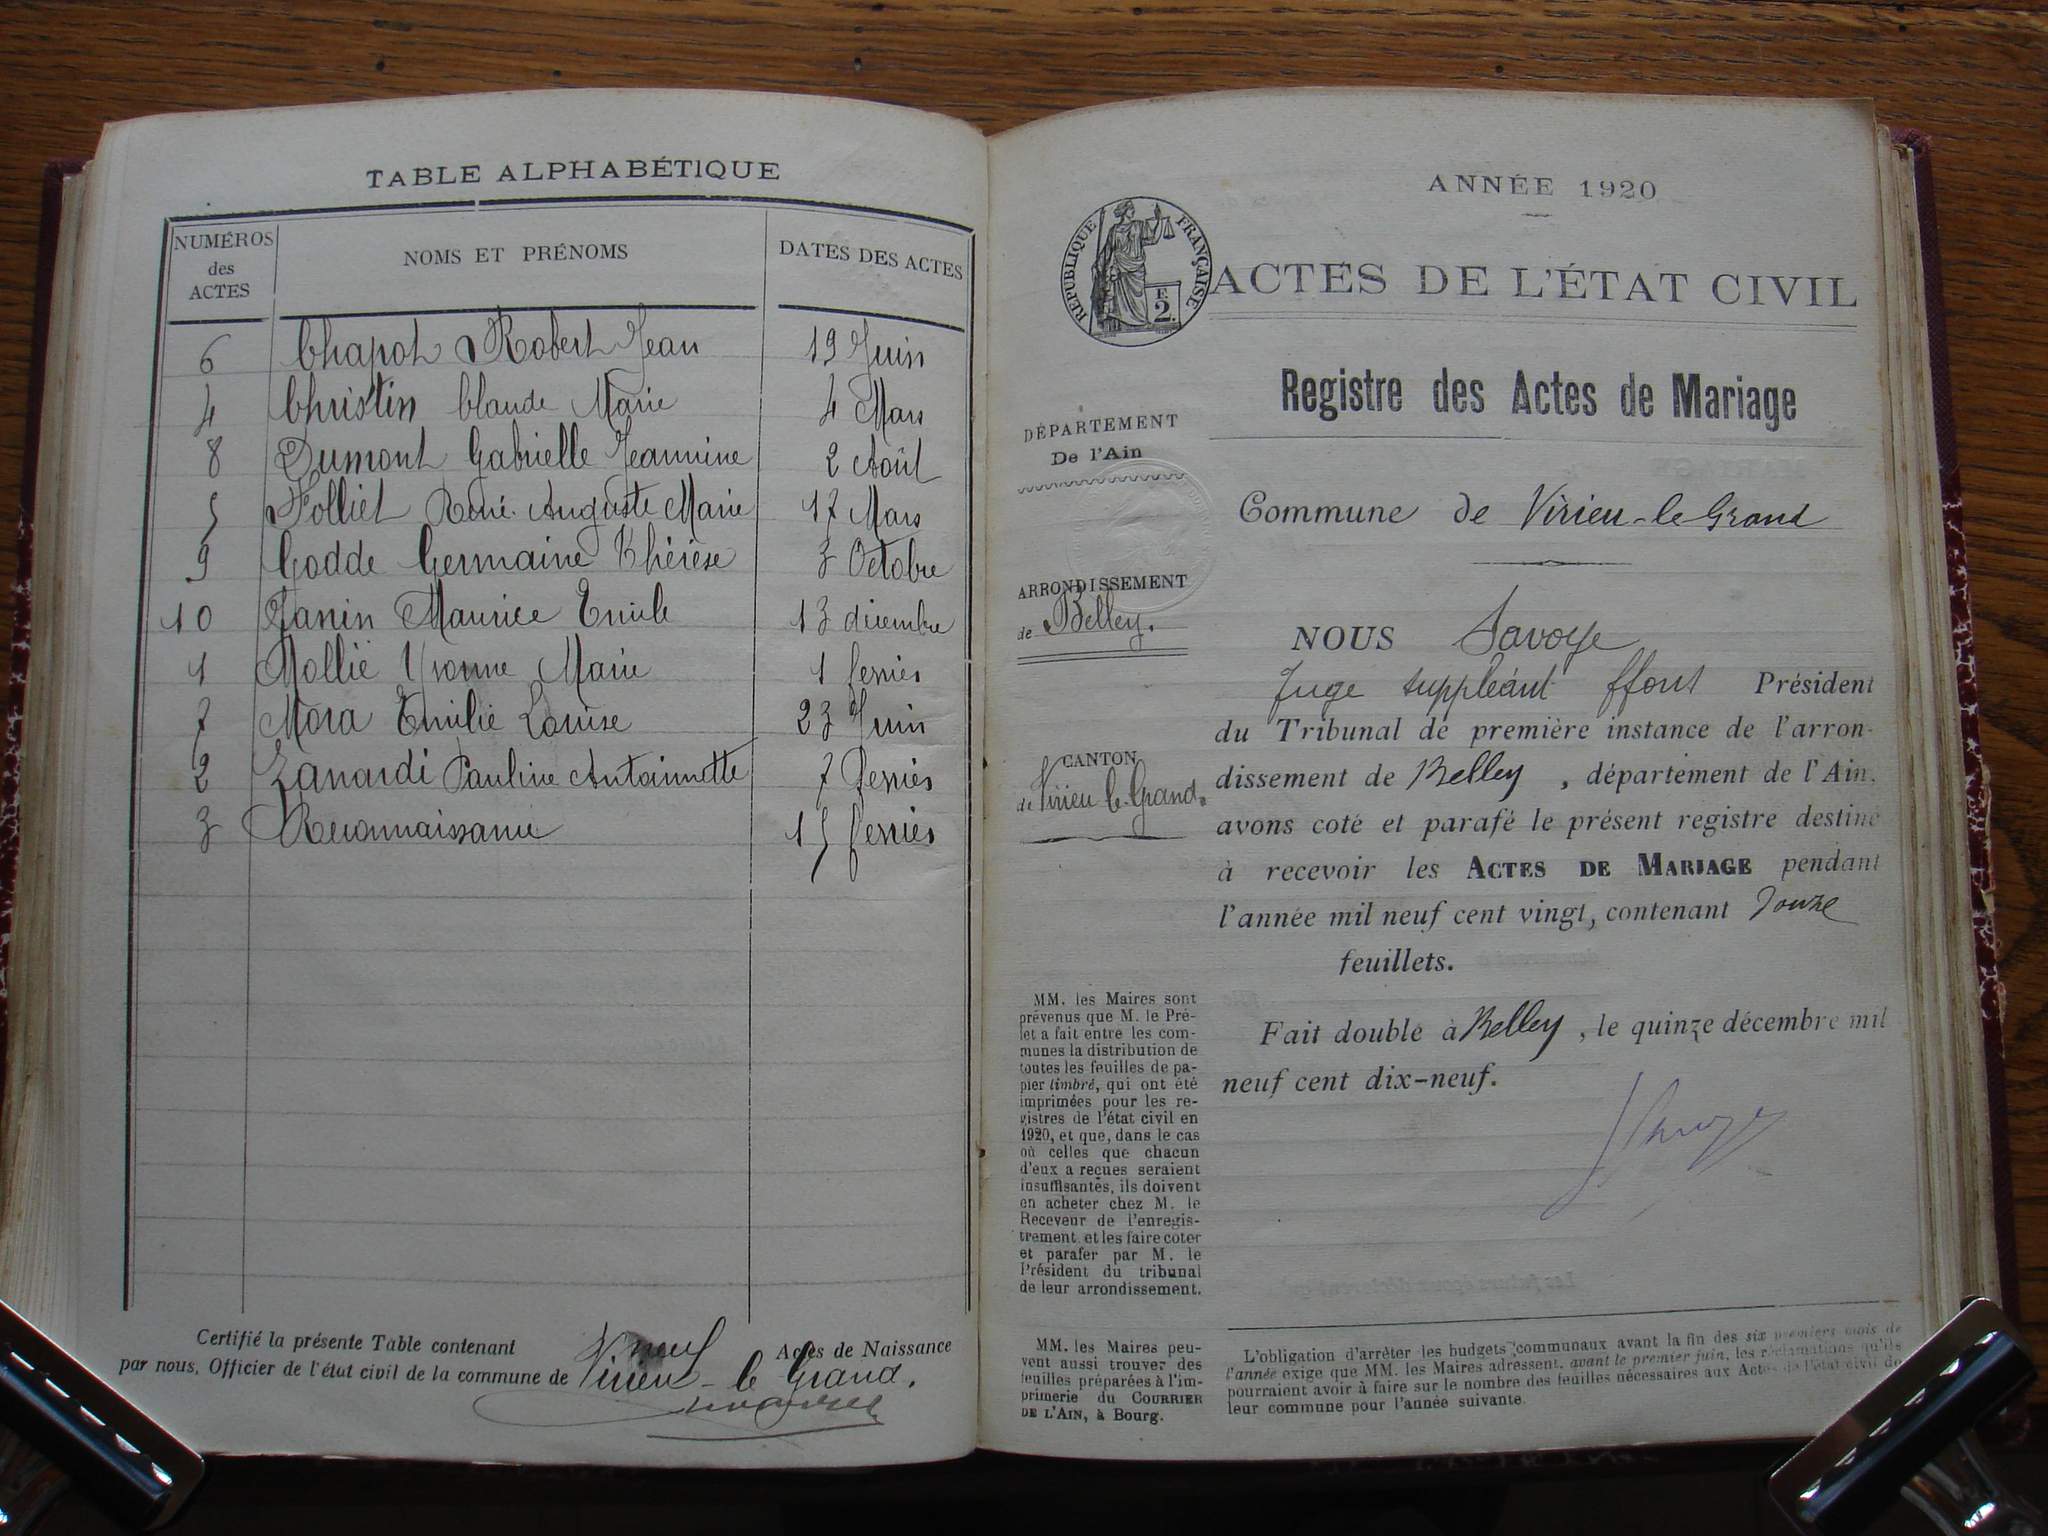 TABLE ALPHABÉTIQUE
NUMÉROS des ACTES NOMS ET PRÉNOMS DATES DES ACTES
6 Chapot Robert Jean 19 Juin
4 Christin Claude Marie 4 Mars
8 Dumont Gabrielle Jeannine 2 Août
5 Folliet René Auguste Marie 17 Mars
9 Godde Germaine Thérèse 3 Octobre
10 Janin Maurice Emile 13 décembre
1 Mollié Yvonne Marie 1 février
7 Mora Emilie Louise 23 Juin
2 Zanardi Pauline Antoinnette 7 février
3 Reconnaissance 15 février
Certifié la présente Table contenant neuf Actes de Naissance
par nous, Officier de l'état civil de la commune de Virieu-le Grand.
ANNÉE 1920
RÉPUBLIQUE FRANÇAISE
F. 2.
ACTES DE L'ÉTAT CIVIL
Registre des Actes de Mariage
DÉPARTEMENT
De l'Ain
Commune de Virieu-le-Grand
ARRONDISSEMENT
de Belley.
NOUS Savoye
Juge suppléant ffont Président
du Tribunal de première instance de l'arron-
CANTON
de Virieu le Grand.
dissement de Belley, département de l'Ain,
avons coté et parafé le présent registre destiné
à recevoir les ACTES DE MARIAGE pendant
l'année mil neuf cent vingt, contenant douze
feuillets.
Fait double à Belley, le quinze décembre mil
neuf cent dix-neuf.
MM. les Maires sont
prévenus que M. le Pré-
fet a fait entre les com-
munes la distribution de
toutes les feuilles de pa-
pier timbré, qui ont été
imprimées pour les re-
gistres de l'état civil en
1920, et que, dans le cas
où celles que chacun
d'eux a reçues seraient
insuffisantes, ils doivent
en acheter chez M. le
Receveur de l'enregis-
trement et les faire coter
et parafer par M. le
Président du tribunal
de leur arrondissement.
MM. les Maires peu-
vent aussi trouver des
feuilles préparées à l'im-
primerie du COURRIER
DE L'AIN, à Bourg.
L'obligation d'arrêter les budgets communaux avant la fin des six premiers mois de
l'année exige que MM. les Maires adressent, avant le premier juin, les réclamations qu'ils
pourraient avoir à faire sur le nombre des feuilles nécessaires aux Actes de l'état civil de
leur commune pour l'année suivante.